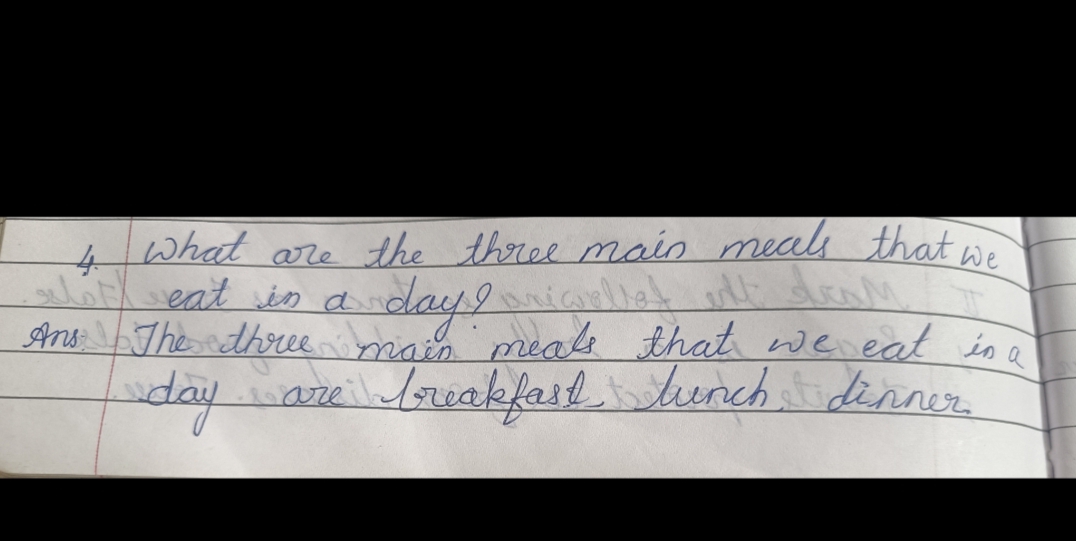 4. What are the three main meals that we
eat in a day?
Ans: The three main meals that we eat in a
day are breakfast, lunch, dinner.